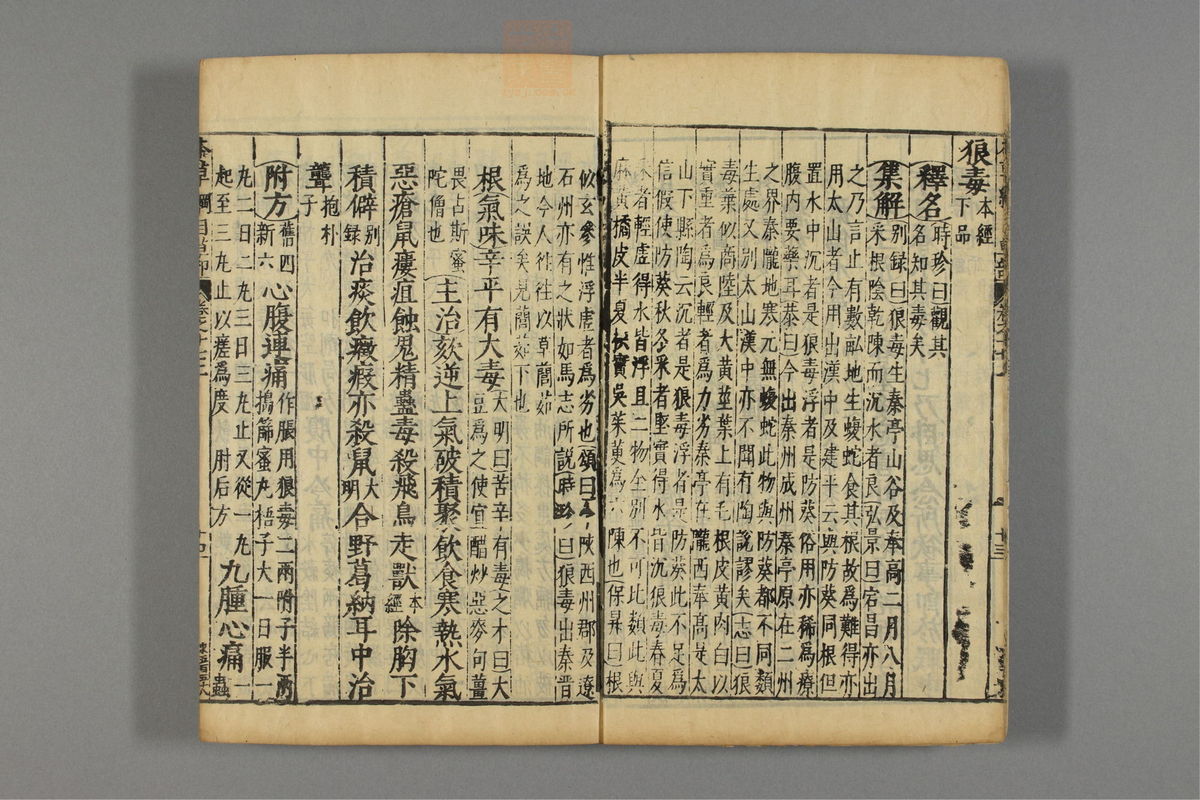 狼毒本經下品
釋名時珍曰觀其名知其毒矣
集解別録曰狼毒生秦亭山谷及奉高二月八月
采根陰乾陳而沉水者良弘景曰宕昌亦出
之乃言止有數畆地生蝮蛇食其根故爲難得亦
用太山者今用出漢中及建平云與防葵同根但
置水中沉者是狼毒浮者是防葵俗用亦稀爲療
腹内要藥耳恭曰今出秦州成州秦亭原在二州
之界秦隴地寒元無蝮蛇此物與防葵都不同類
生處又别太山漢中亦不聞有陶説謬矣志曰狼
毒葉似商陸及大黄莖葉上有毛根皮黄肉白以
實重者爲良輕者爲力劣秦亭在隴西奉高是太
山下縣陶云沉者是狼毒浮者是防葵此不足爲
信假使防葵秋冬采者堅實得水皆沉狼毒春夏
采者輕虚得水皆浮且二物全别不可比類此與
麻黄橘皮半夏枳實吳茱萸爲六陳也保昇曰根
似玄參惟浮虚者爲劣也頌曰今陜西州郡及遼
石州亦有之狀如馬志所説時珍曰狼毒出秦晋
地今人往往以草䕡茹
爲之誤矣見䕡茹下也
根氣味辛平有大毒大明曰苦辛有毒之才曰大豆爲之使宜醋炒惡麥句薑
畏占斯蜜陀僧也主治欬逆上氣破積聚飲食寒熱水氣
惡瘡鼠瘻疽蝕鬼精蠱毒殺飛鳥走獸本經除胸下
積僻别録治痰飲癥瘕亦殺鼠大明合野葛納耳中治
聾抱朴子
附方舊四新六心腹連痛作脹用狼毒二兩附子半兩搗篩蜜丸梧子大一日服一
丸二日二丸三日三丸止又從一丸
起至三丸止以瘥爲度肘后方九種心痛一蟲